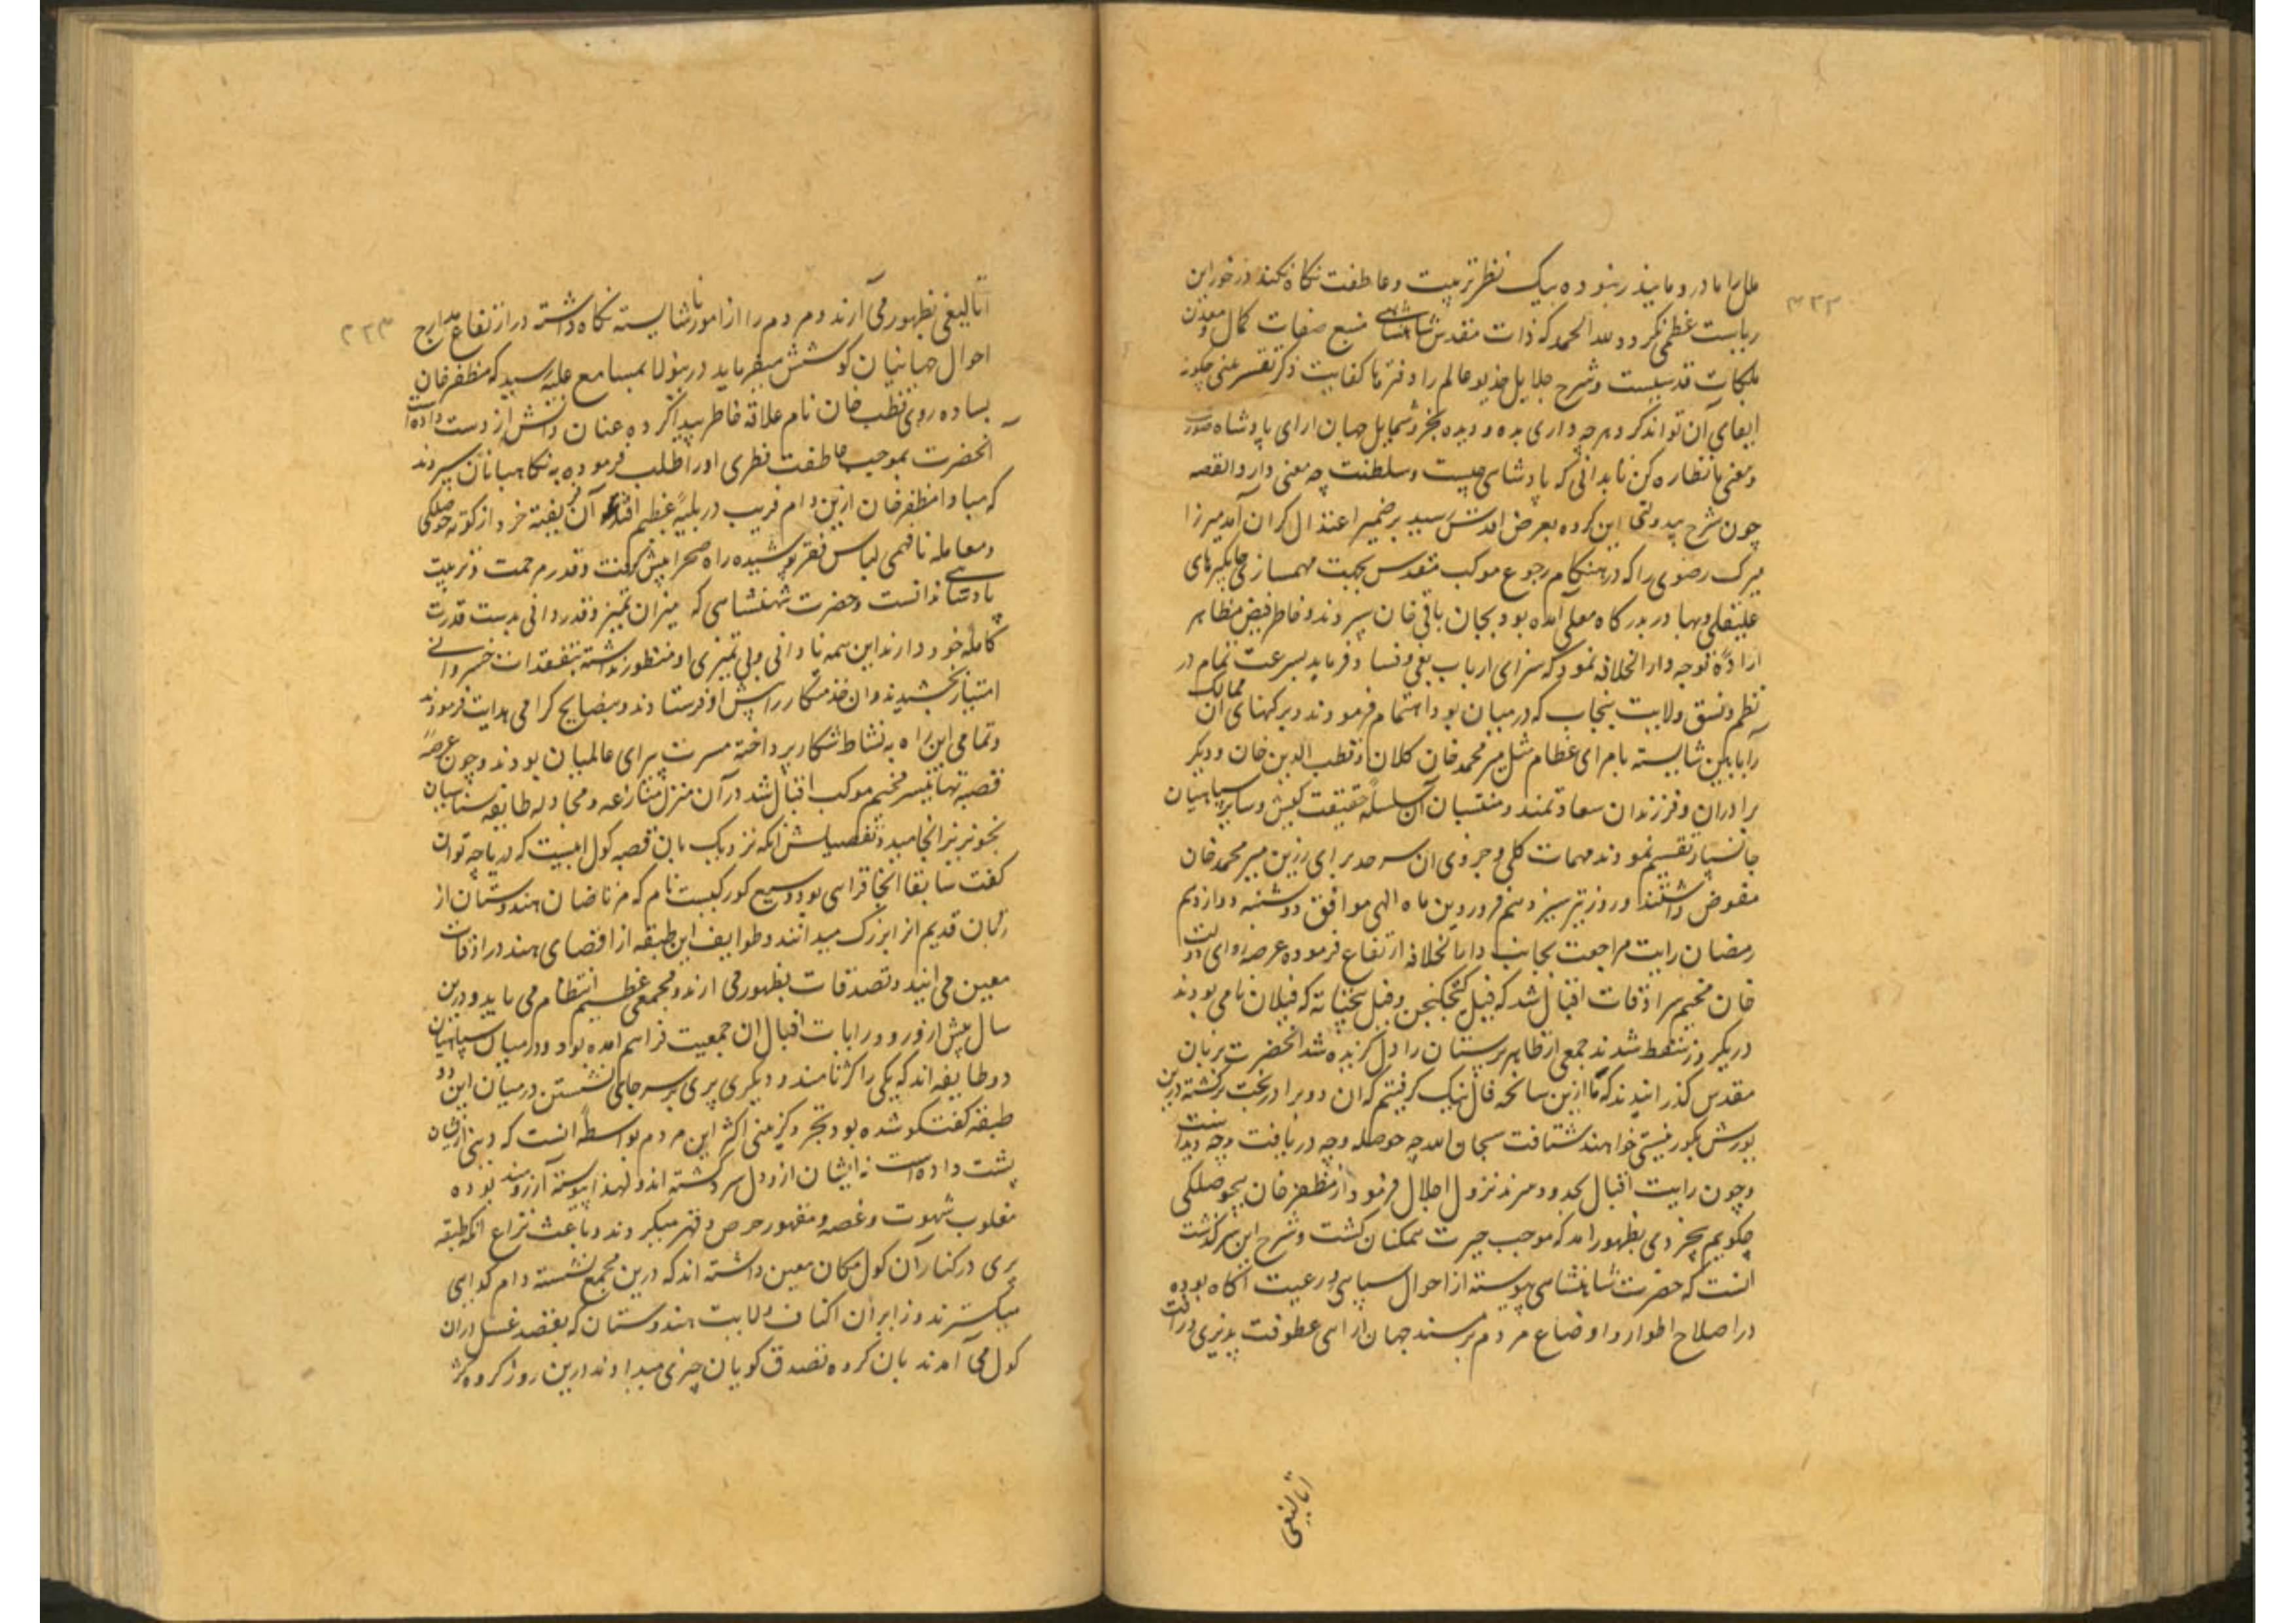 ملل را مادر و مانیذر بنوده بیک نظر تربیت و عاطفت نگاه نکند در خور این
ریاست عظمی نکردد و لله الحمد که ذات مقدس شاهنشاهی منبع صفات کمال و معدن
ملکات قدسیست و شرح جلایل خدیو عالم را دفترها کفایت ذکر نفس معنی چکونه
ایفای آن تواند کرد هر چه داری بده و دیده بخر و شمایل جهان ارای پادشاه صورت
و معنی را نظاره کن تا بدانی که پادشاهی چیست و سلطنت چه معنی دارد القصه
چون شرح بیدولتی این کروه بعرض اقدس رسید بر ضمیر اعتدال کران آمد میرزا
میرک رضوی را که در هنکام رجوع موکب مقدس بجهت مهمسازی جایکیرهای
علیقلی و بهادر بدرکاه معلی آمده بود بجان باقی خان سپردند و خاطر فیض مظاهر
اراده توجه دار الخلافه نمود که سزای ارباب بغی و فساد فرماید بسرعت تمام در
نظم و نسق ولایت پنجاب که در میان بود اهتمام فرمودند و پرکنهای آن ممالک
را بآیین شایسته بامرای عظام مثل میر محمد خان کلان و قطب الدین خان و دیکر
برادران و فرزندان سعادتمند و منتسبان آن سلسله حقیقت کیش و سایر سپاهیان
جانسپار تقسیم نمودند مهمات کلی و جزوی ان سرحد برای رزین میر محمد خان
مفوض داشتند و روز تیر سیزدهم فروردین ماه الهی موافق دوشنبه دوازدهم
رمضان رایت مراجعت بجانب دار الخلافه ارتفاع فرموده عرصه وای دولت
خان مخیم سرادقات اقبال شد که فیل کجکنجن و فیل پنچپایه که فیلان نامی بودند
در یکروز سقط شدند جمعی از ظاهر پرستان را دل کزیده شد انحضرت بزبان
مقدس کذرانیدند که ما ازین سانحه فال نیک کرفتیم که ان دو برادر بخت برکشته درین
یورش بکور نیستی خواهند شتافت سبحان الله چه حوصله و چه دریافت و چه دیدا نست
و چون رایت اقبال بحدود سرهند نزول اجلال فرمود از مظفر خان بیحوصلکی
چکویم بیخردی بظهور امد که موجب حیرت همکنان کشت و شرح این سرکذشت
انست که حضرت شاهنشاهی پیوسته از احوال سپاهی و رعیت آکاه بوده
در اصلاح اطوار و اوضاع مردم بر مسند جهان ارائی عطوفت پدری و رافت
اتالیغی
۴۳۳
اتالیغی بظهور می آرند و مردم را از امور ناشایسته نکاه داشته در ارتفاع مدارج
احوال جهانیان کوشش میفرماید درینولا بمسامع علیه رسید که مظفر خان
بساده روی قطب خان نام علاقه خاطر پیدا کرده عنان دانش از دست داده است
انحضرت بموجب عاطفت فطری او را طلب فرموده به نکاهبانان سپردند
که مبادا مظفر خان ازین دام فریب در بلیه عظیم افتد آن فریفته خرد از کوته حوصلکی
و معامله نافهمی لباس فقر پوشیده راه صحرا پیش کرفت و قدر مرحمت و تربیت
پادشاهی ندانست و حضرت شهنشاهی که میزان تمیز و قدردانی بدست قدرت
کامله خود دارند این همه نادانی و بی تمیزی او منظور نداشته بتفقدات خسروانی
امتیاز بخشیدند و ان خدمتکار را پیش او فرستادند و بنصایح کرامی هدایت فرمودند
و تمامی این راه به نشاط شکار پرداخته مسرت پیرای عالمیان بودند و چون عرصه
قصبه تهانیسر مخیم موکب اقبال شد در آن منزل منازعه و مجادله طایفه سناسیان
بخونریز انجامید و تفصیلش انکه نزدیک بان قصبه کول ابیست که دریاچه توان
کفت سابقا انجا قرائی بود وسیع کورکیست نام که مرتاضان هندوستان از
زمان قدیم انرا بزرک میدانند و طوایف این طبقه از اقصای هند در اوقات
معین می ایند و تصدقات بظهور می ارند و مجمعی عظیم انتظام می یابد و درین
سال پیش از ورود رایات اقبال ان جمعیت فراهم امده بود و در میان سپاهیان
دو طایفه اند که یکی را کر نامند و دیکری پری بر سر جای نشستن در میان این دو
طبقه کفتکو شده بود تجرد کزینی اکثر این مردم بواسطه انست که دنیا از ایشان
پشت داده است نه ایشان از دل سرد کشته اند و لهذا پیوسته آرزومند بوده
مغلوب شهوت و غصه و مقهور حرص و قهر میکردند و باعث نزاع انکه طبقه
پری در کنار آن کول مکان معین داشته اند که درین مجمع نشسته دام کدایی
میکسترند و زایران اکناف ولایت هندوستان که بقصد غسل دران
کول می آمدند بان کروه تصدق کویان چیزی میدادند درین روز کروه کر